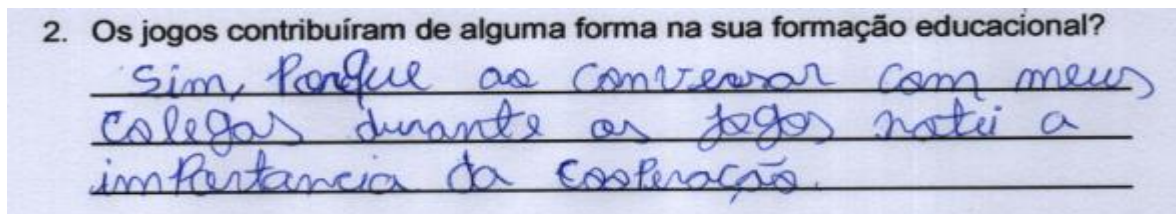 2. Os jogos contribuíram de alguma forma na sua formação educacional?
Sim, Porque ao conversar com meus
colegas durante os jogos notei a
importancia da cooperação.